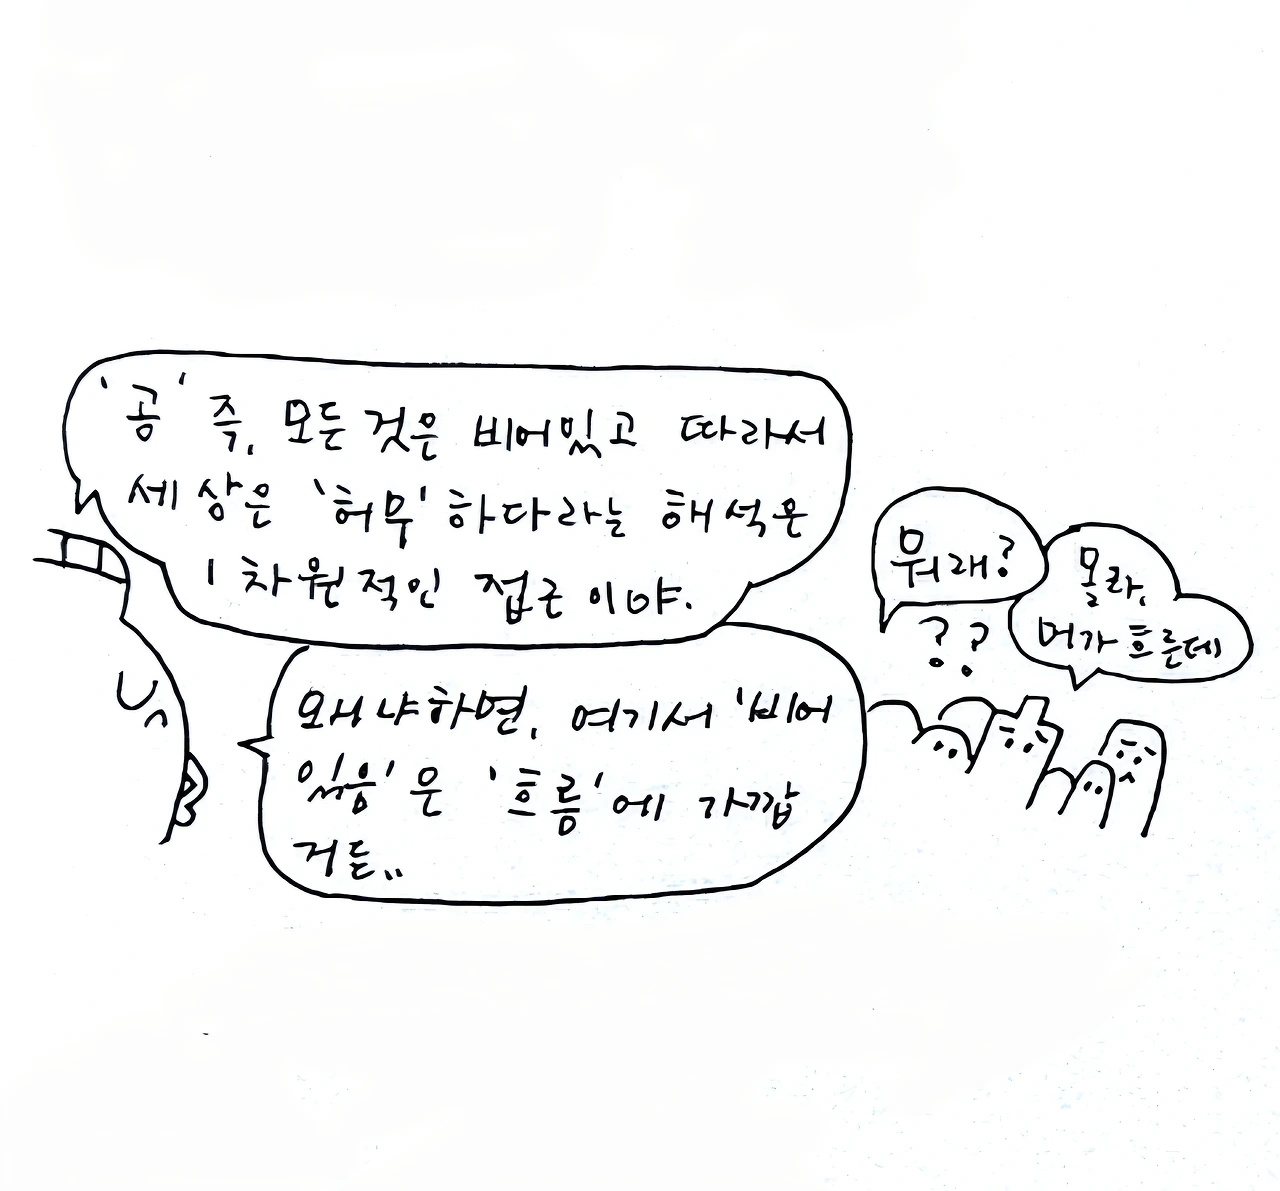 '공' 즉, 모든 것은 비어있고 따라서
세상은 '허무' 하다라는 해석은
1차원적인 접근이야.
왜냐하면, 여기서 '비어
있음'은 '흐름'에 가깝
거든..
뭐래?
몰라,
머가 흐른데
? ?